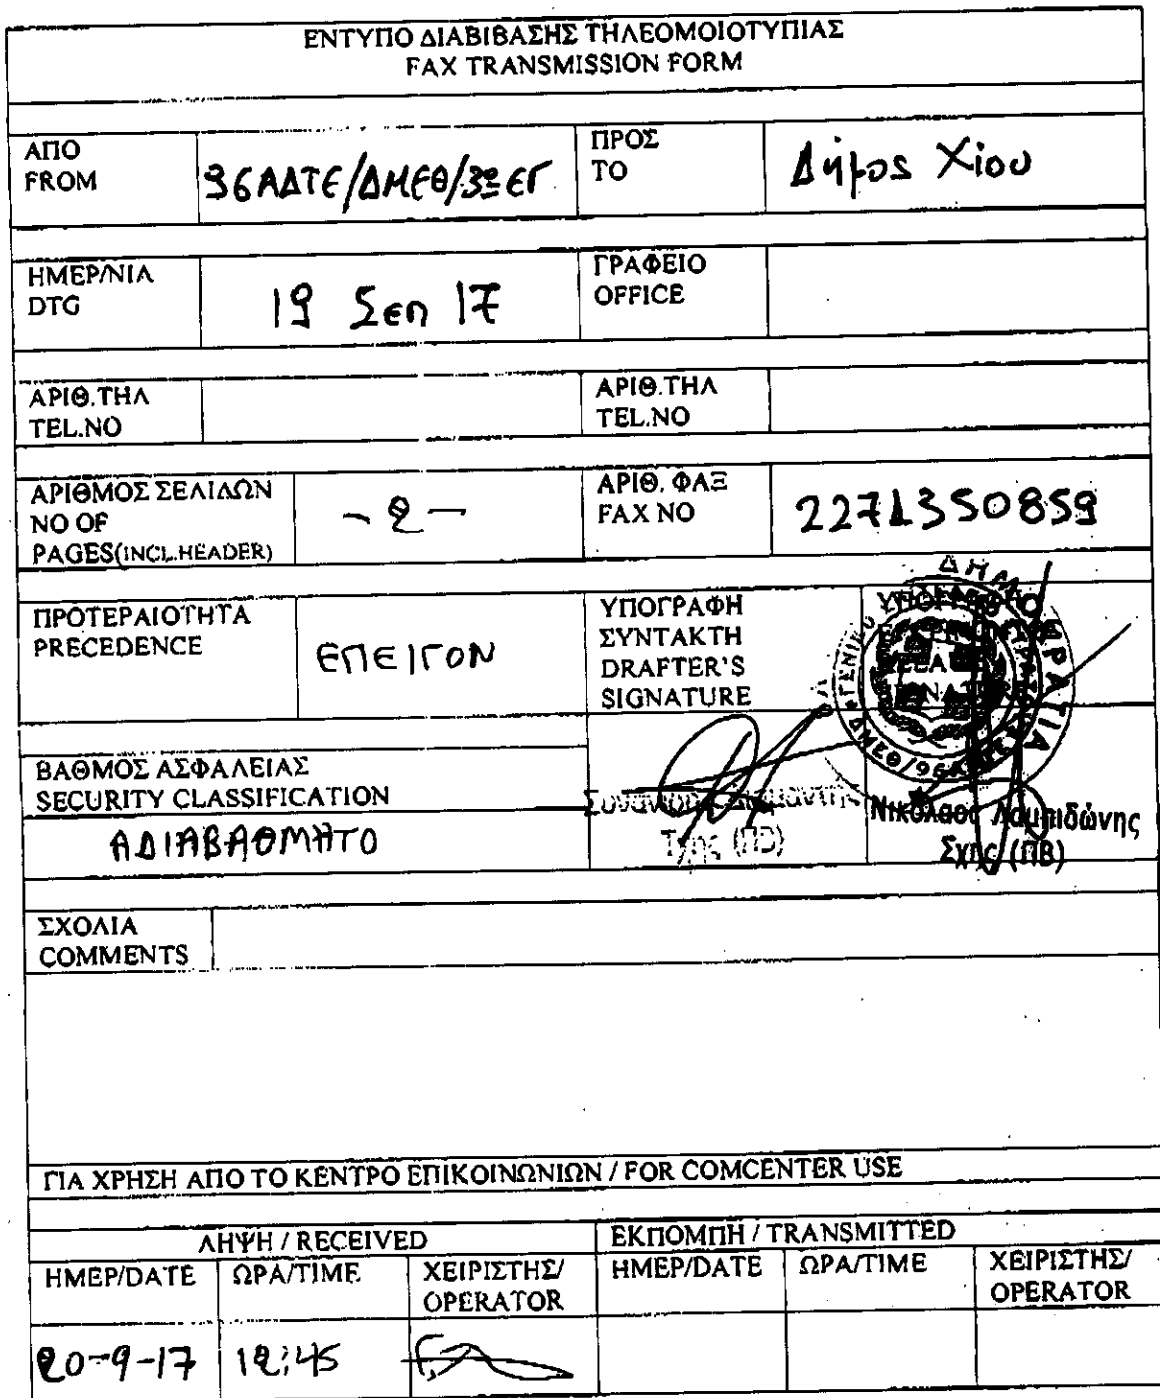 ΕΝΤΥΠΟ ΔΙΑΒΙΒΑΣΗΣ ΤΗΛΕΟΜΟΙΟΤΥΠΙΑΣ
FAX TRANSMISSION FORM
ΑΠΟ
FROM
96ΑΔΤΕ/ΔΜΕΘ/3ο ΕΓ
ΠΡΟΣ
TO
Δήμος Χίου
ΗΜΕΡ/ΝΙΑ
DTG
19 Σεπ 17
ΓΡΑΦΕΙΟ
OFFICE
ΑΡΙΘ.ΤΗΛ
TEL.NO
ΑΡΙΘ.ΤΗΛ
TEL.NO
ΑΡΙΘΜΟΣ ΣΕΛΙΔΩΝ
NO OF
PAGES(INCL.HEADER)
- 2 -
ΑΡΙΘ. ΦΑΞ
FAX NO
2271350859
ΠΡΟΤΕΡΑΙΟΤΗΤΑ
PRECEDENCE
ΕΠΕΙΓΟΝ
ΥΠΟΓΡΑΦΗ
ΣΥΝΤΑΚΤΗ
DRAFTER'S
SIGNATURE
ΔΜΕΘ/96
ΒΑΘΜΟΣ ΑΣΦΑΛΕΙΑΣ
SECURITY CLASSIFICATION
ΑΔΙΑΒΑΘΜΗΤΟ
Νικόλαος Λαμπιδώνης
Σχης (ΠΒ)
ΣΧΟΛΙΑ
COMMENTS
ΓΙΑ ΧΡΗΣΗ ΑΠΟ ΤΟ ΚΕΝΤΡΟ ΕΠΙΚΟΙΝΩΝΙΩΝ / FOR COMCENTER USE
ΛΗΨΗ / RECEIVED
ΕΚΠΟΜΠΗ / TRANSMITTED
ΗΜΕΡ/DATE
ΩΡΑ/TIME
ΧΕΙΡΙΣΤΗΣ/
OPERATOR
ΗΜΕΡ/DATE
ΩΡΑ/TIME
ΧΕΙΡΙΣΤΗΣ/
OPERATOR
20-9-17
12:45